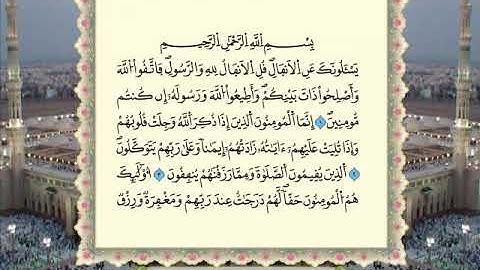 بِسْمِ اللَّهِ الرَّحْمَٰنِ الرَّحِيمِ
يَسْـَٔلُونَكَ عَنِ الْأَنفَالِ ۖ قُلِ الْأَنفَالُ لِلَّهِ وَالرَّسُولِ ۖ فَاتَّقُوا اللَّهَ
وَأَصْلِحُوا ذَاتَ بَيْنِكُمْ ۖ وَأَطِيعُوا اللَّهَ وَرَسُولَهُ إِن كُنتُم
مُّؤْمِنِينَ ١ إِنَّمَا الْمُؤْمِنُونَ الَّذِينَ إِذَا ذُكِرَ اللَّهُ وَجِلَتْ قُلُوبُهُمْ
وَإِذَا تُلِيَتْ عَلَيْهِمْ ءَايَٰتُهُ زَادَتْهُمْ إِيمَٰنًا وَعَلَىٰ رَبِّهِمْ يَتَوَكَّلُونَ
٢ الَّذِينَ يُقِيمُونَ الصَّلَوٰةَ وَمِمَّا رَزَقْنَٰهُمْ يُنفِقُونَ ٣ أُولَٰٓئِكَ
هُمُ الْمُؤْمِنُونَ حَقًّا ۚ لَّهُمْ دَرَجَٰتٌ عِندَ رَبِّهِمْ وَمَغْفِرَةٌ وَرِزْقٌ